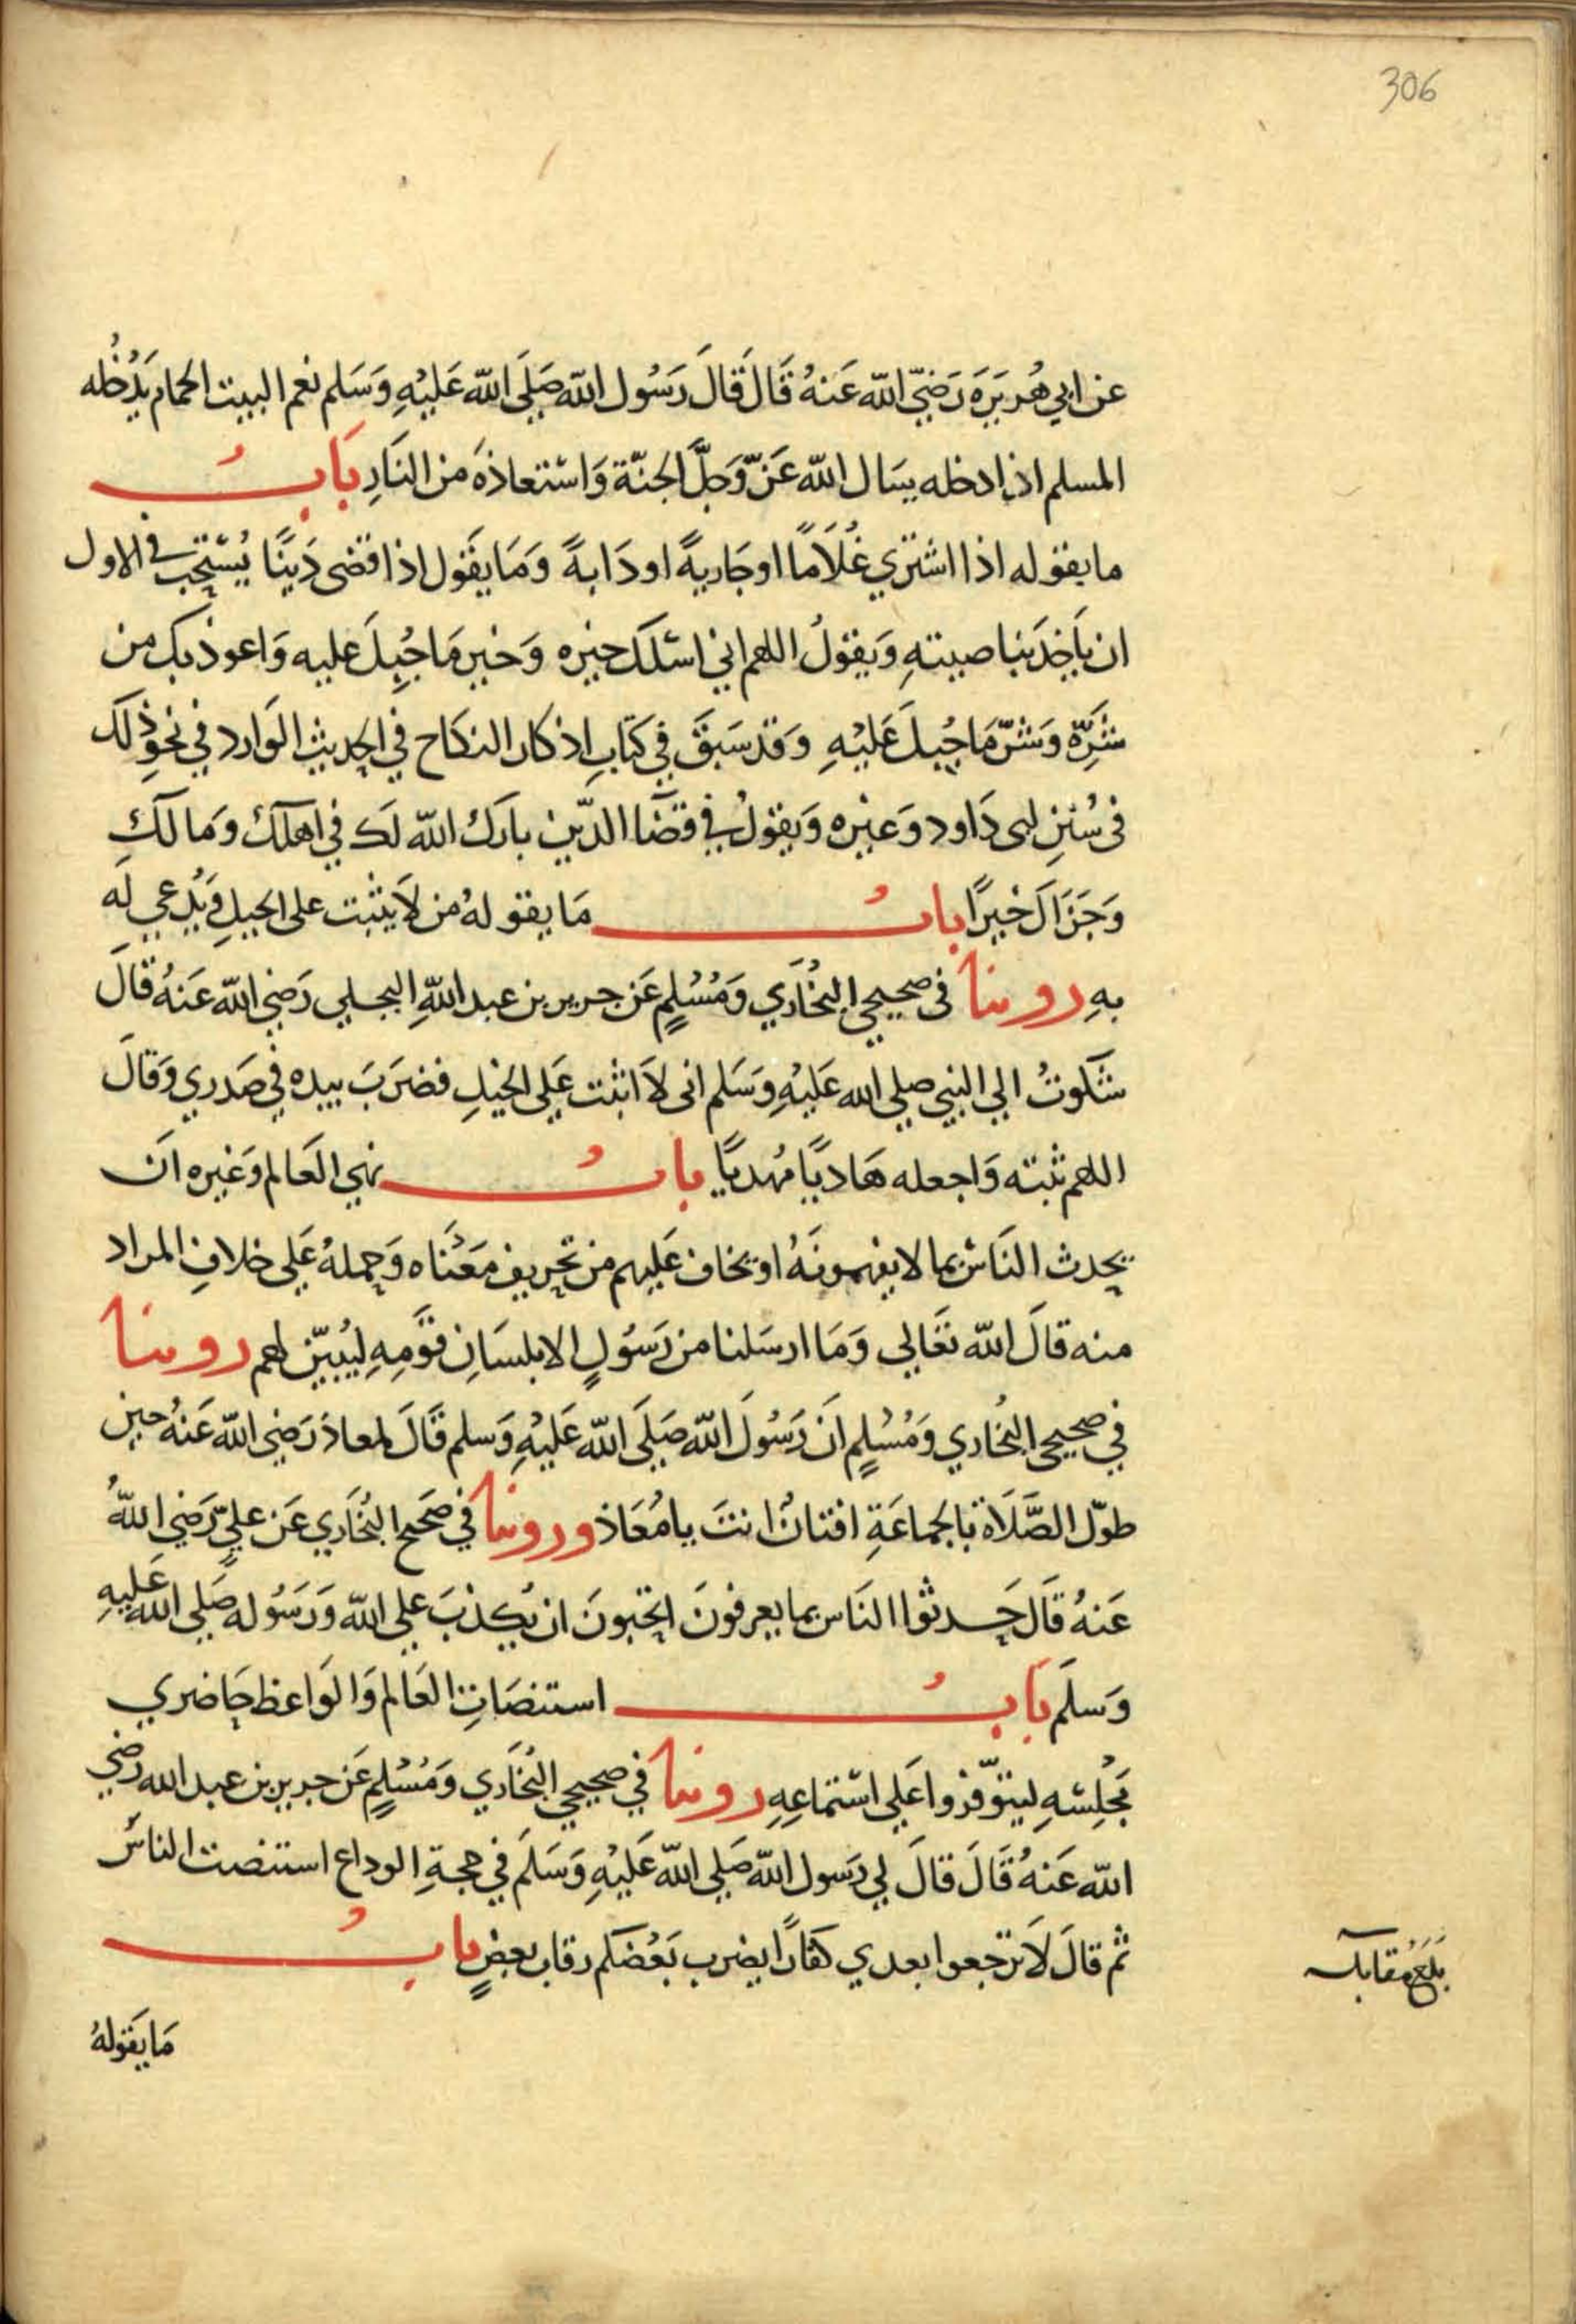 306
عن ابي هُريَرَة رَضيّ الله عَنهُ قَالَ قَالَ رَسُول الله صَلَى الله عَليْهِ وَسَلم نعم البيت الحمام يَدْخُله
المسلم اذا دخله يسَال الله عَزّ وَجلَّ الجنّة وَاسْتعاذهَ من النَارِ بَابُ
ما يقوله اذا اشتري غُلَامًا اوجَاريةً او دَابةً وَمَا يقَول اذا قضى دَينًا يُسْتَحَب في الاول
ان يَاخذَ بنَاصيتهِ وَيقولُ اللهم اني اسْئلكَ خيره وَخير مَا جُبِلَ عليه وَاعوذ بك من
شَرِّه وَشرّ مَا جُبلَ عَليْهِ وَقد سَبقَ في كتَابِ اذكار النكَاح في الحديث الوَارد في نحوِ ذلكَ
فى سُننِ ابى دَاود وَغيْره وَيقولُ في قضَا الدّين بارَكَ الله لَك في اهلكَ وَمالكَ
وَجَزَاكَ خيرًا بابُ مَا يقولهُ من لاَ يثبت على الخيلِ وَيُدعي لَه
بهِ روينا فى صحيحي البُخَاري وَمُسْلمٍ عَن جرير بن عبد اللهِ البجلي رَضي الله عَنهُ قالَ
شكَوتُ الي النبي صلي الله عَليْهِ وَسَلم انى لاَ اثبت عَلي الخيلِ فضرَبَ بيده في صَدري وَقالَ
اللهم ثبته وَاجعله هَاديًا مهديًا بابُ نهي العَالم وَغيره انَ
يحدث النَاسَ بما لا يفهمونَهُ او يخاف عَليهم من تحريف مَعْنَاه وَحملهُ عَلى خلافِ المراد
منه قالَ الله تعَالي وَمَا ارسَلنا من رَسُولٍ الا بلسَانِ قَومِهِ ليُبيّن لهم روينا
في صحيحي البُخاري وَمُسْلمٍ انَ رَسُولَ الله صَلَى الله عَليْهِ وَسلم قَالَ لمعاذ رَضي الله عَنهُ حين
طوّل الصَّلَاة بالجماعَةِ افتانٌ انتَ يا مُعَاذ وروينا في صَحيح البُخَاري عَن عليّ رَضي اللهُ
عَنهُ قَالَ حَدثوا النَاس بما يعرفونَ اتحبونَ ان يُكذبَ علي الله وَرَسُوله صَلي الله عَليهِ
وَسلَم بَابُ استنصَاتِ العَالم وَالوَاعظ حَاضري
مَجْلِسْهِ ليتوّفروا عَلي اسْتماعِهِ روينا في صحيحي البُخَاري وَمُسْلمٍ عَن جرير بن عبد الله رضي
الله عَنهُ قَالَ قالَ لي رَسول الله صَلي الله عَليْهِ وَسَلَم في حجةِ الوداع استنصت الناسَ
ثم قالَ لاَ ترجعوا بعدي كفارًا يضرب بَعْضكم رقاب بعضٍ بابُ
بَلَغ مُقابلة
مَا يَقولهُ